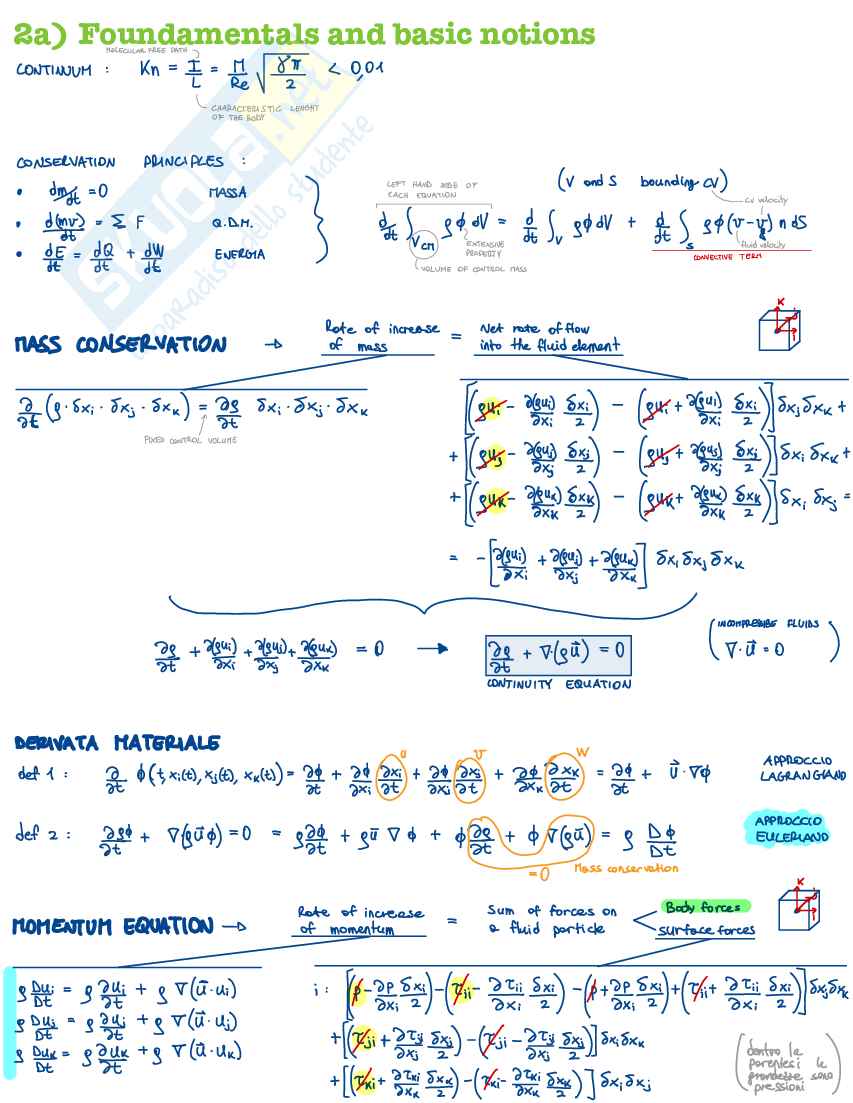 2a) Foundamentals and basic notions
MOLECULAR FREE PATH
CONTINUUM : Kn = I/L = M/Re √(γπ/2) < 0,01
CHARACTERISTIC LENGHT
OF THE BODY
CONSERVATION PRINCIPLES :
• dm/dt = 0 MASSA
• d(mv)/dt = Σ F Q.D.M.
• dE/dt = dQ/dt + dW/dt ENERGIA
LEFT HAND SIDE OF
EACH EQUATION
(V and S bounding CV)
CV velocity
d/dt ∫_VCM ρϕ dV = d/dt ∫_V ρϕ dV + d/dt ∫_S ρϕ(v-v_s) n dS
EXTENSIVE
PROPERTY
fluid velocity
CONVECTIVE TERM
VOLUME OF CONTROL MASS
SKUOLA.net
il paradiso dello studente
MASS CONSERVATION → Rate of increase of mass = Net rate of flow into the fluid element
K
J
i
∂/∂t (ρ · δxi · δxj · δxk) = ∂ρ/∂t δxi · δxj · δxk
FIXED CONTROL VOLUME
[(ρui - ∂(ρui)/∂xi δxi/2) - (ρui + ∂(ρui)/∂xi δxi/2)] δxj δxk +
+ [(ρuj - ∂(ρuj)/∂xj δxj/2) - (ρuj + ∂(ρuj)/∂xj δxj/2)] δxi δxk +
+ [(ρuk - ∂(ρuk)/∂xk δxk/2) - (ρuk + ∂(ρuk)/∂xk δxk/2)] δxi δxj =
= - [∂(ρui)/∂xi + ∂(ρuj)/∂xj + ∂(ρuk)/∂xk] δxi δxj δxk
∂ρ/∂t + ∂(ρui)/∂xi + ∂(ρuj)/∂xj + ∂(ρuk)/∂xk = 0 → ∂ρ/∂t + ∇·(ρu⃗) = 0
CONTINUITY EQUATION
(∇·u⃗ = 0)
DERIVATA MATERIALE
u v w
def 1 : ∂/∂t ϕ(t, xi(t), xj(t), xk(t)) = ∂ϕ/∂t + ∂ϕ/∂xi ∂xi/∂t + ∂ϕ/∂xj ∂xj/∂t + ∂ϕ/∂xk ∂xk/∂t = ∂ϕ/∂t + u⃗ · ∇ϕ
APPROCCIO
LAGRANGIANO
def 2 : ∂ρϕ/∂t + ∇(ρu⃗ϕ) = 0 = ρ ∂ϕ/∂t + ρu̅ ∇ϕ + ϕ ∂ρ/∂t + ϕ ∇(ρu̅) = ρ Dϕ/Dt
APPROCCIO
EULERIANO
= 0 Mass conservation
MOMENTUM EQUATION → Rate of increase of momentum = Sum of forces on a fluid particle < Body forces
surface forces
K
J
i
ρ Dui/Dt = ρ ∂ui/∂t + ρ ∇(u⃗ · ui)
ρ Duj/Dt = ρ ∂uj/∂t + ρ ∇(u⃗ · uj)
ρ Duk/Dt = ρ ∂uk/∂t + ρ ∇(u⃗ · uk)
i : [(p - ∂p/∂xi δxi/2) - (τii - ∂τii/∂xi δxi/2) - (p + ∂p/∂xi δxi/2) + (τii + ∂τii/∂xi δxi/2)] δxj δxk
+ [(τji + ∂τji/∂xj δxj/2) - (τji - ∂τji/∂xj δxj/2)] δxi δxk
+ [(τki + ∂τki/∂xk δxk/2) - (τki - ∂τki/∂xk δxk/2)] δxi δxj
(dentro la
parentesi le
grandezze sono
pressioni)